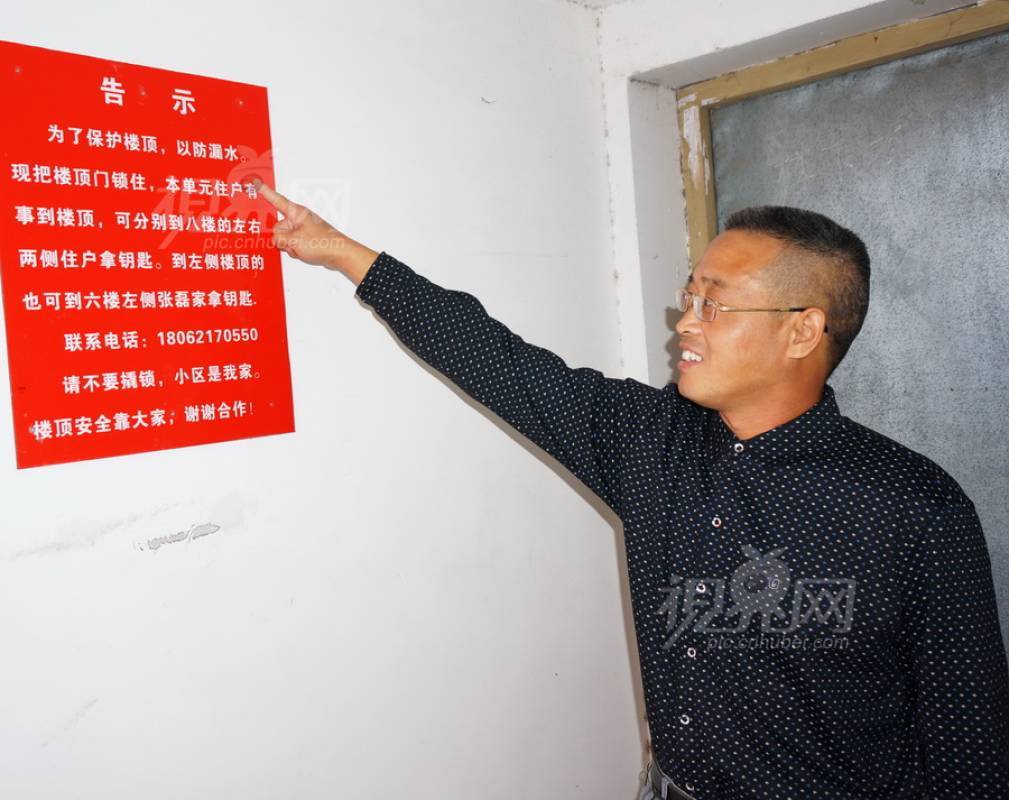 告 示
为了保护楼顶，以防漏水。
现把楼顶门锁住，本单元住户有
事到楼顶，可分别到八楼的左右
两侧住户拿钥匙。到左侧楼顶的
也可到六楼左侧张磊家拿钥匙.
联系电话：18062170550
请不要撬锁，小区是我家。
楼顶安全靠大家；谢谢合作！
视界网
pic.cnhubei.com
视界网
pic.cnhubei.com